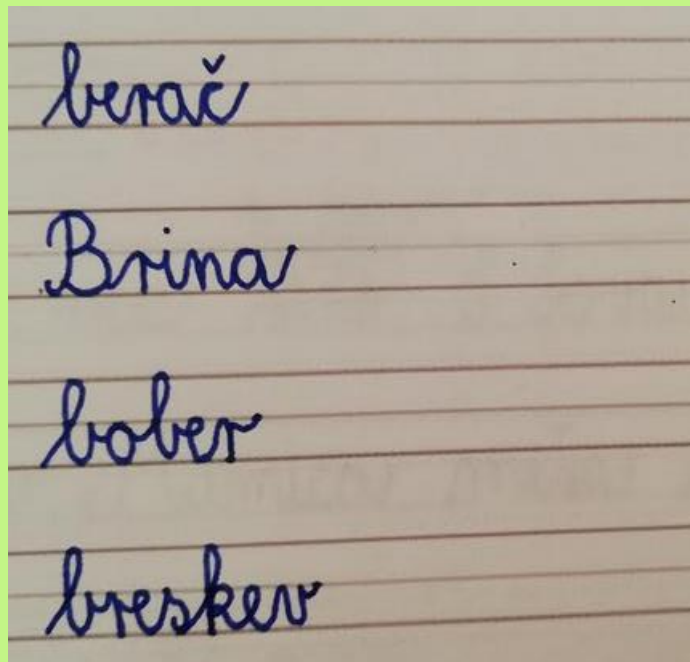 berač
Brina
bober
breskev